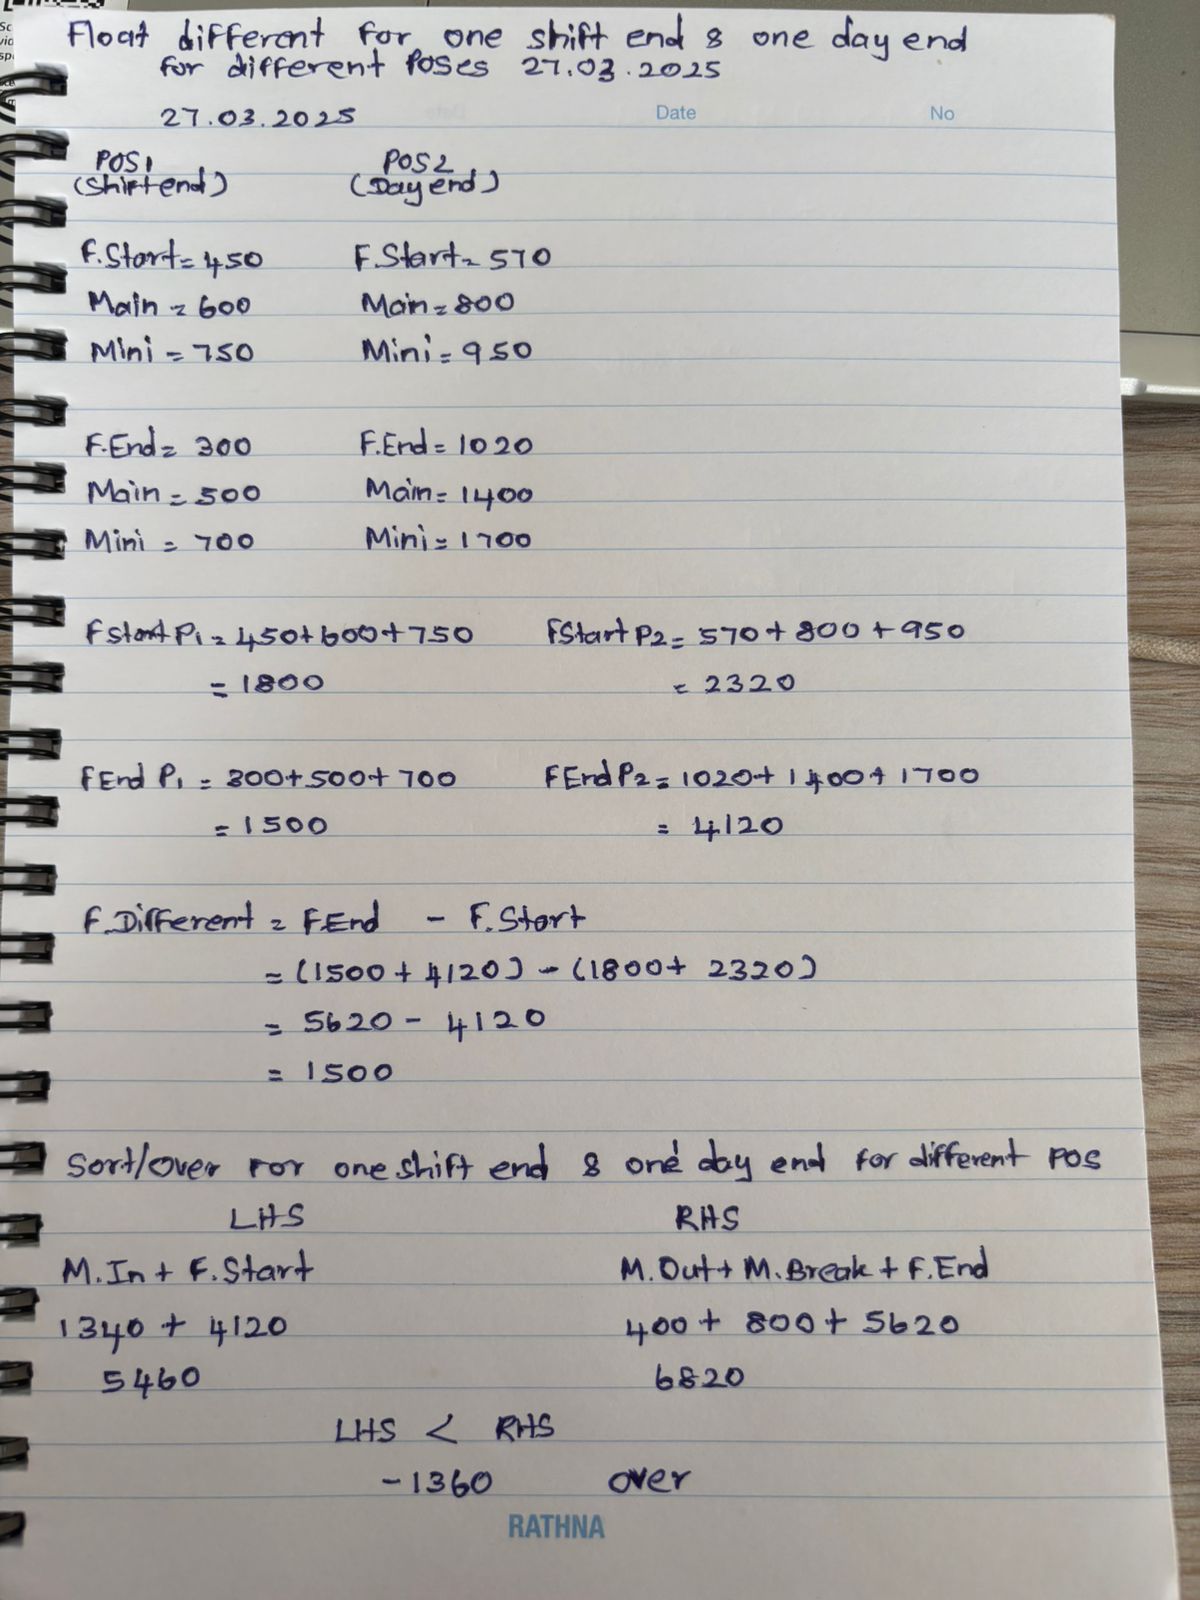 Float different for one shift end & one day end
for different Poses 27.03.2025
27.03.2025
Date
No
POS1 POS2
(Shift end) (Day end)
F.Start = 450 F.Start = 570
Main = 600 Main = 800
Mini = 750 Mini = 950
F.End = 300 F.End = 1020
Main = 500 Main = 1400
Mini = 700 Mini = 1700
FStart P1 = 450+600+750 FStart P2 = 570+800+950
= 1800 = 2320
FEnd P1 = 300+500+700 FEnd P2 = 1020+1400+1700
= 1500 = 4120
F.Different = F.End - F.Start
= (1500+4120) - (1800+2320)
= 5620 - 4120
= 1500
Sort/over For one shift end & one day end for different POS
LHS RHS
M.In + F.Start M.Out + M.Break + F.End
1340 + 4120 400 + 800 + 5620
5460 6820
LHS < RHS
-1360 over
RATHNA